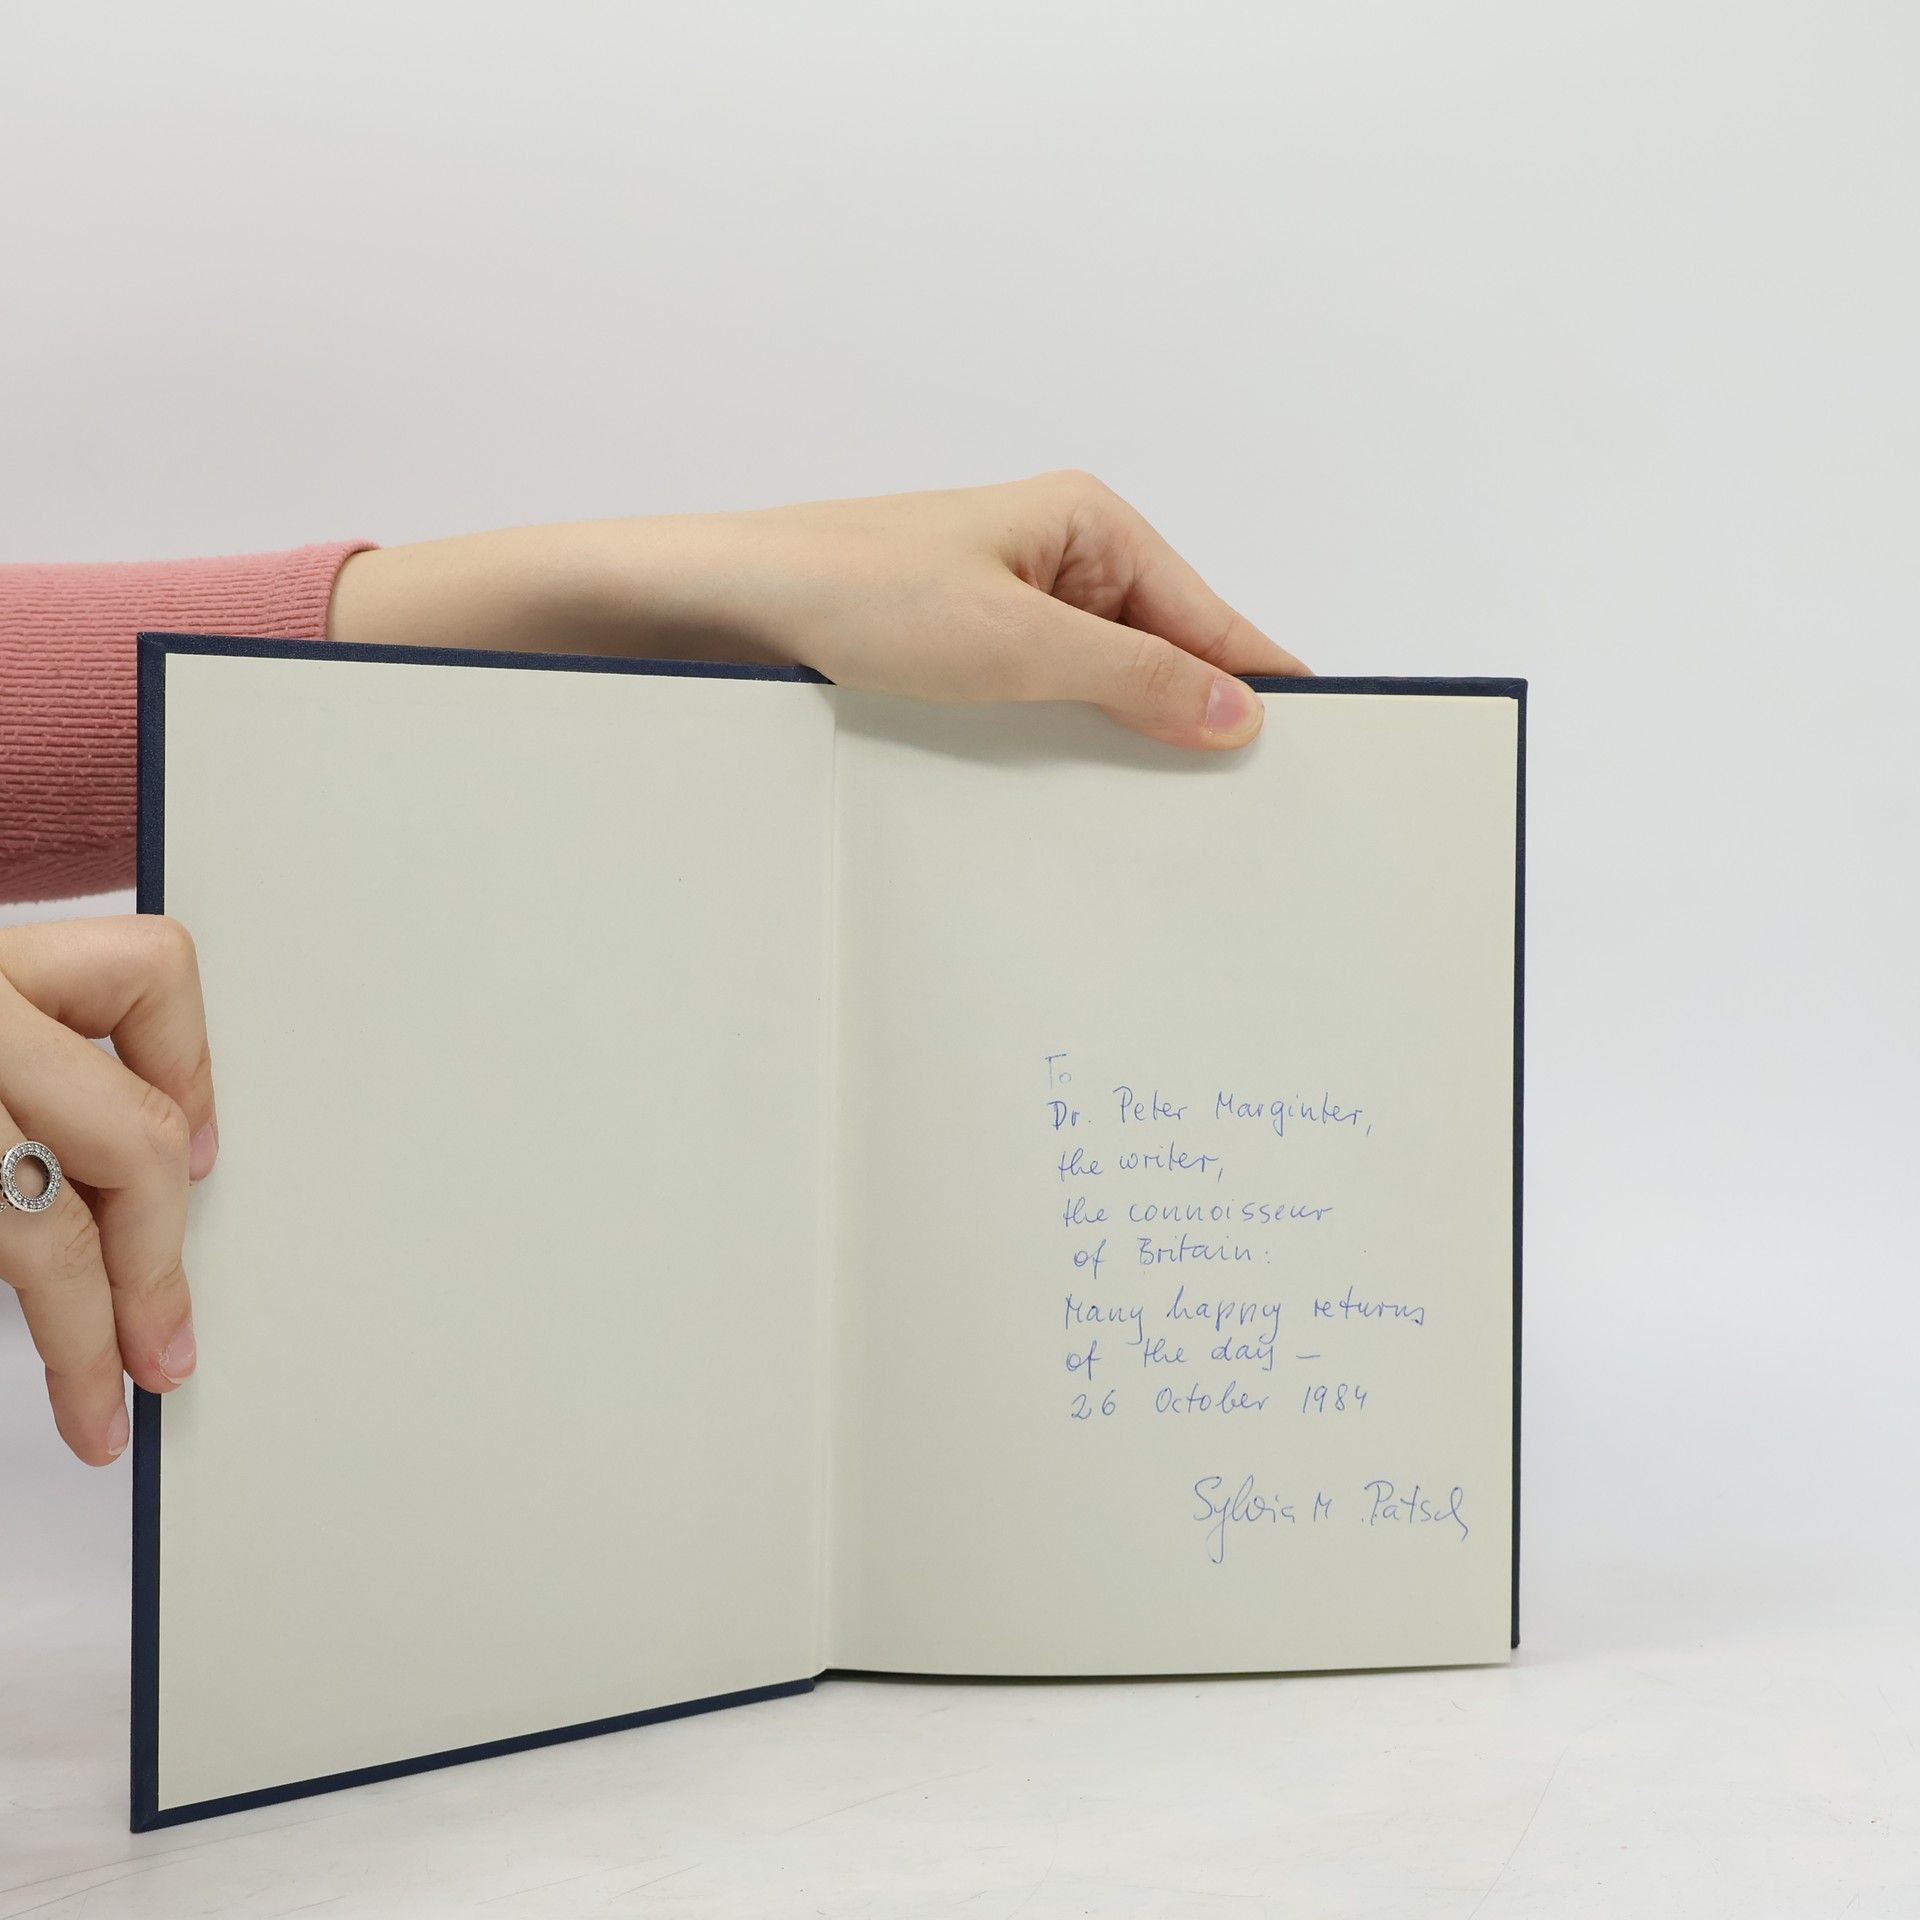 To
Dr. Peter Marginter,
the writer,
the connoisseur
of Britain:
Many happy returns
of the day –
26 October 1984
Sylvia M. Patsch